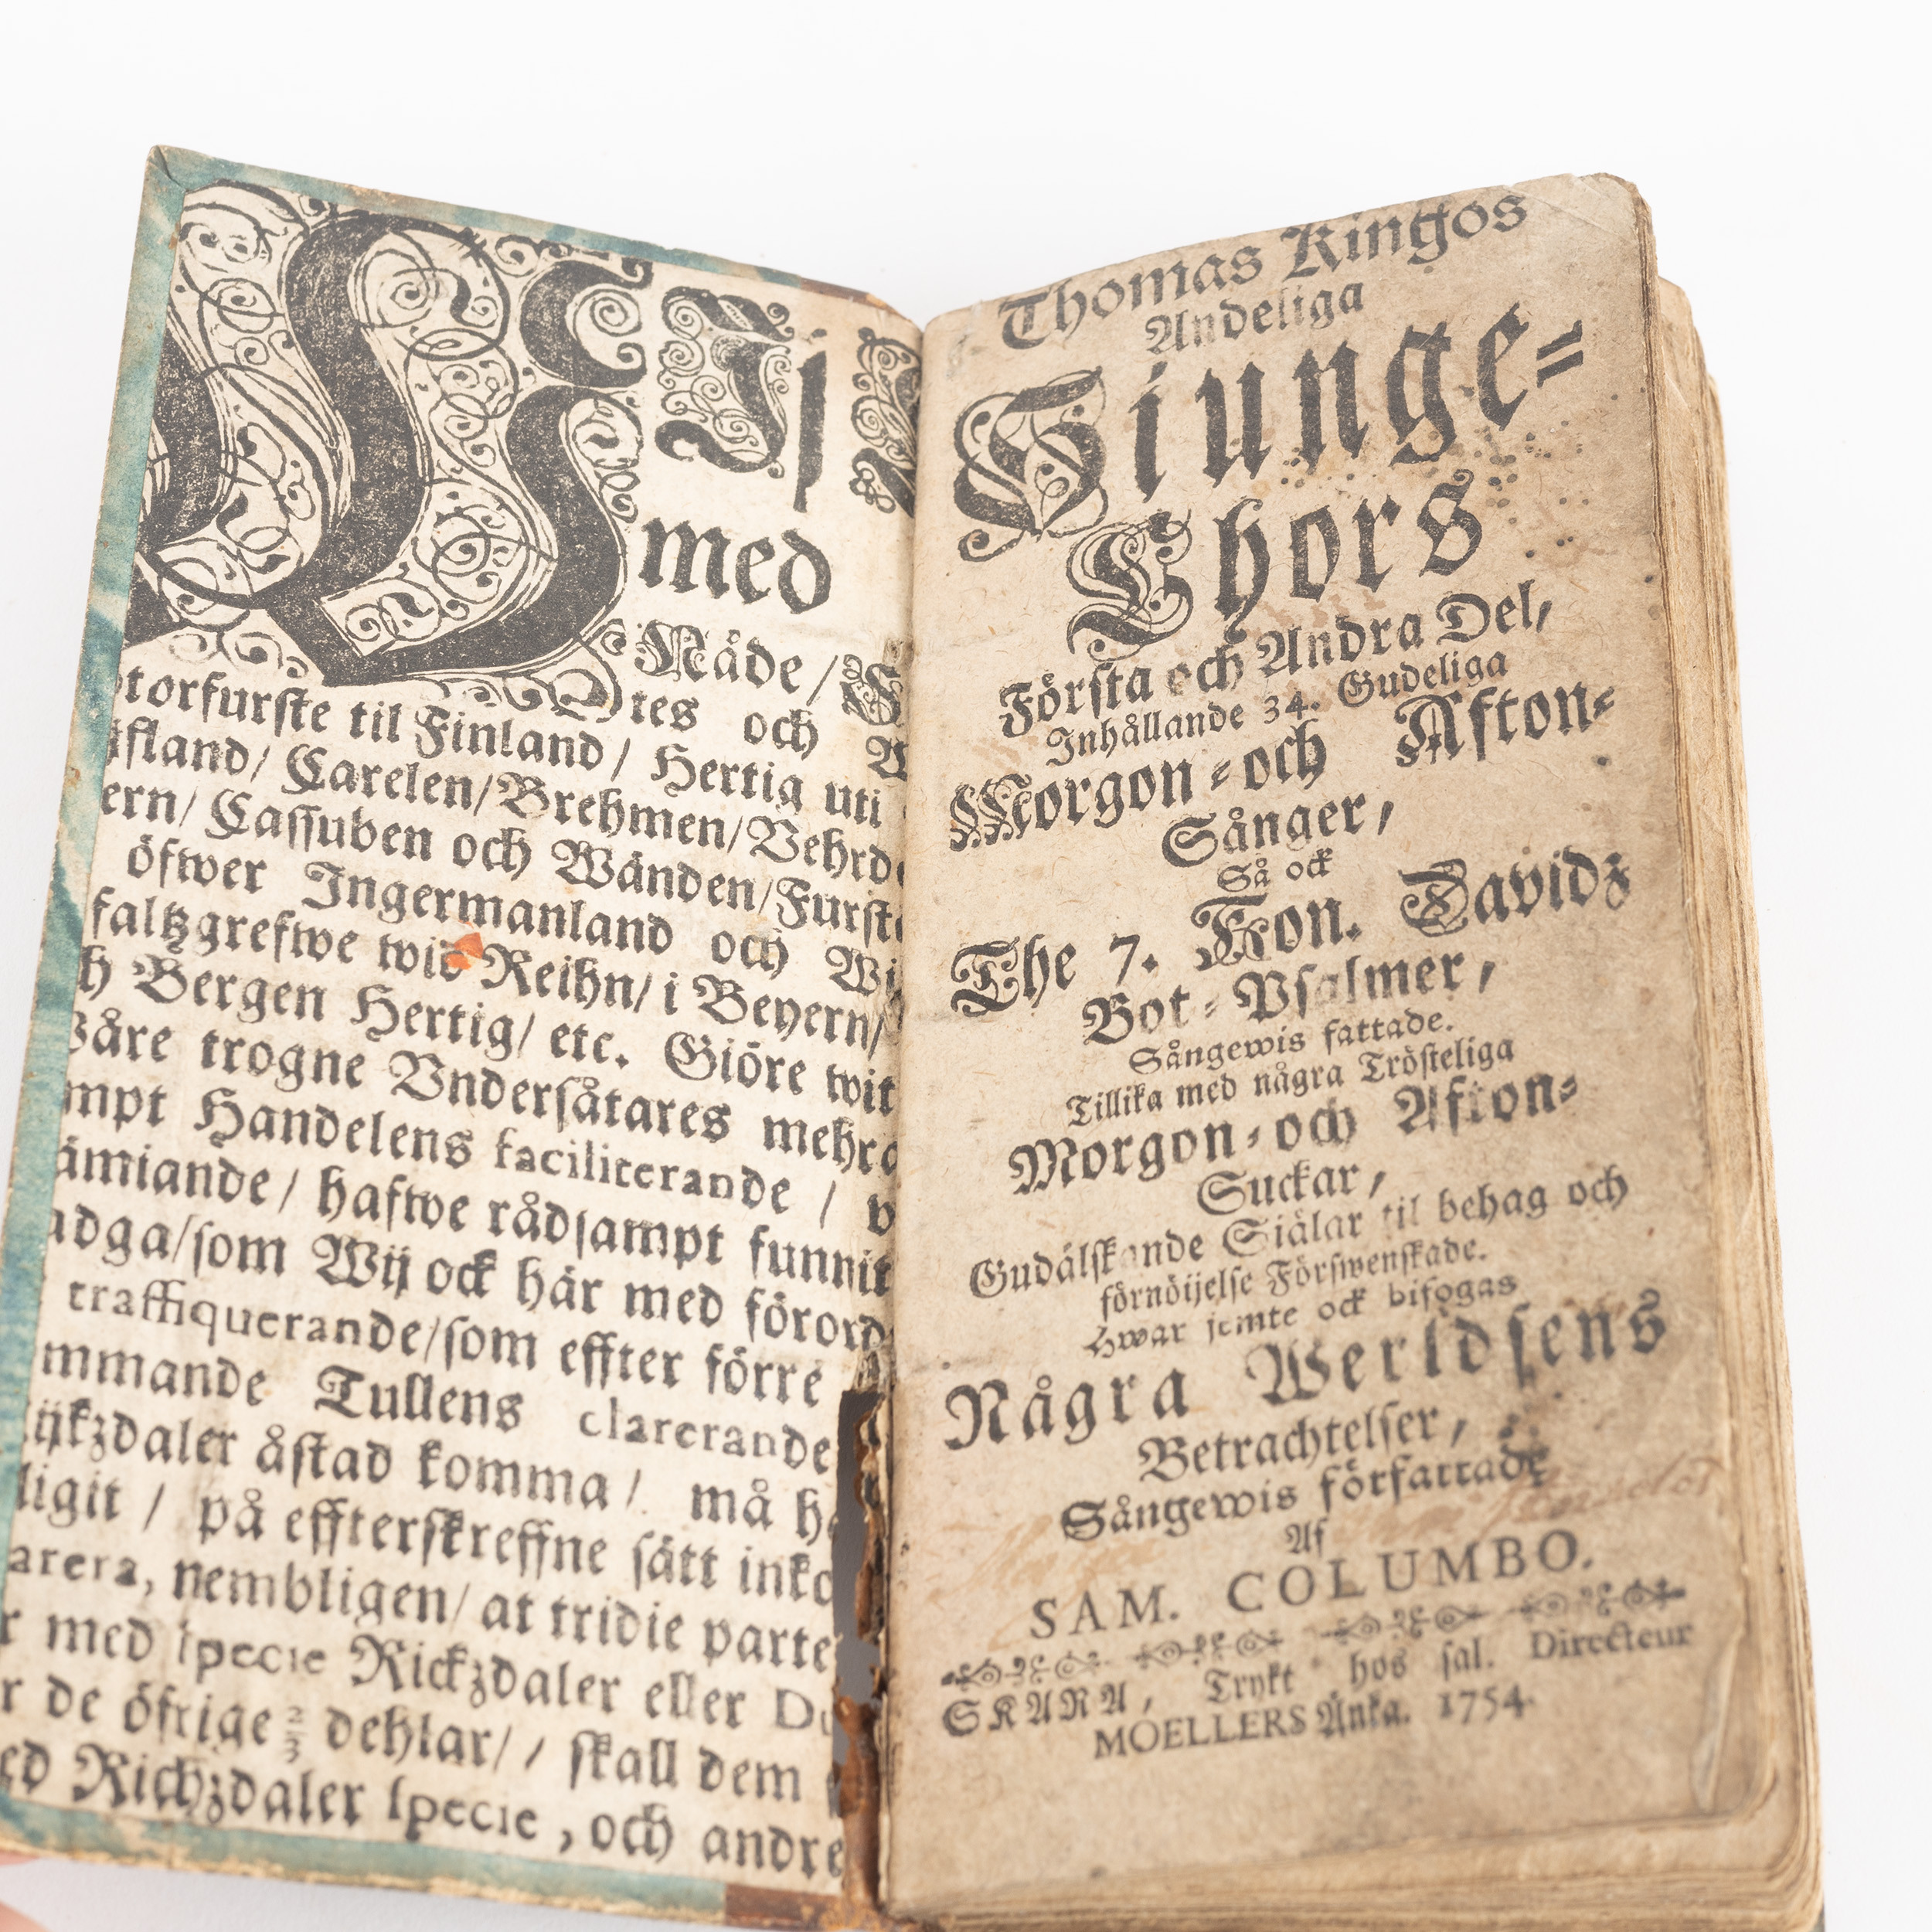 Wij
med
Nåde/
tes och
torfurste til Finland/ Hertig uti
fland/ Carelen/Brehmen/Vehrd
ern/ Cassuben och Wänden/Furst
öfwer Ingermanland och Wi
faltzgrefwe wid Reihn/ i Beyern/
h Bergen Hertig/ etc. Giöre wit
våre trogne Vndersåtares mehr
mpt Handelens faciliterande / v
ämiande/ hafwe rådsampt funnit
adga/som Wij ock här med förord
traffiquerande/som effter förre
mmande Tullens clarerande
ijkzdaler åstad komma / må h
ligit / på effterskreffne sätt inko
arera, nembligen/ at tridie parte
r med specie Rickzdaler eller Du
r de öfrige 2/3 dehlar/ / skall dem
ed Richzdaler specie, och andre
Thomas Kingos
Andeliga
Siunge=
Chors
Första och Andra Del,
Inhållande 34. Gudeliga
Morgon=och Afton=
Sånger,
Så ock
The 7. Kon. Davidz
Bot=Psalmer,
Sångewis fattade.
Tillika med några Trösteliga
Morgon=och Afton=
Suckar,
Gudälskande Siälar til behag och
förnöijelse Förswenskade.
Hwar jemte ock bifogas
Några Werldsens
Betrachtelser,
Sångewis författade
Af
SAM. COLUMBO.
SKARA, Tryckt hos sal. Directeur
MOELLERS Änka. 1754